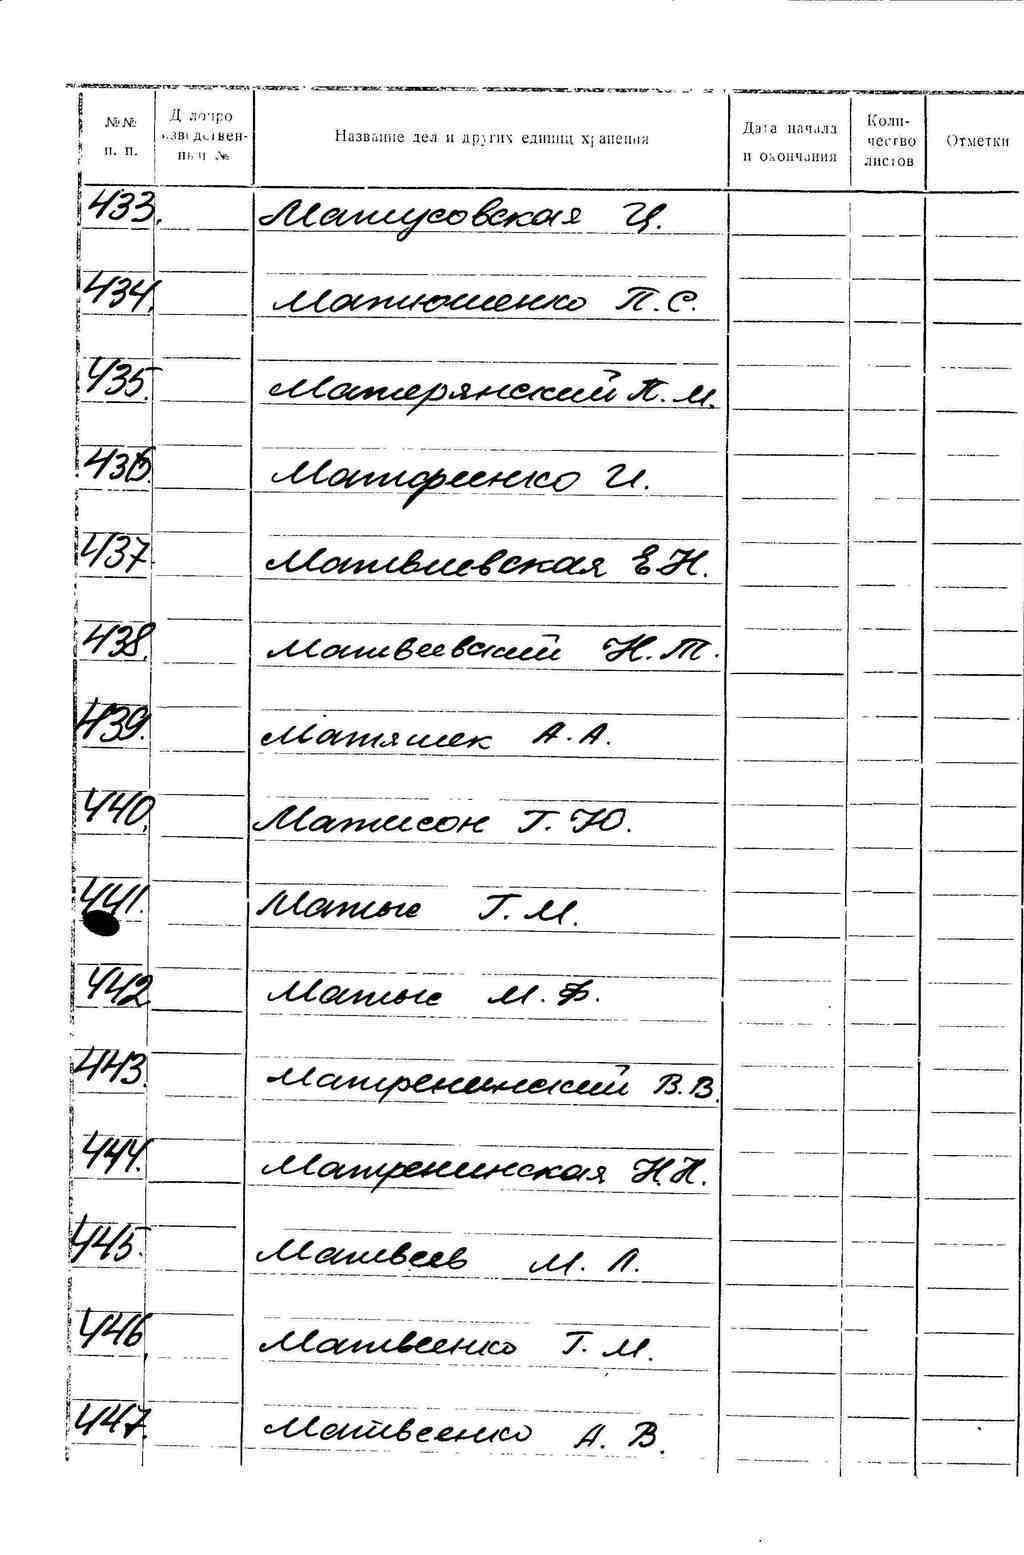 №№ п. п.
Делопроизводственный №
Название дел и других единиц хранения
Дата начала и окончания
Количество листов
Отметки
433. Матусовская Ц.
434. Матюшенко П.С.
435. Матерянский П.М.
436. Матфиенко И.
437. Матвиевская Е.Н.
438. Матвеевский Н.Т.
439. Матяшек А.А.
440. Матисон Г.Ю.
441. Матыс Г.М.
442. Матыс М.Ф.
443. Матренинский В.В.
444. Матренинская Н.Н.
445. Матвеев М.Л.
446. Матвеенко Г.М.
447. Матвеенко А.В.